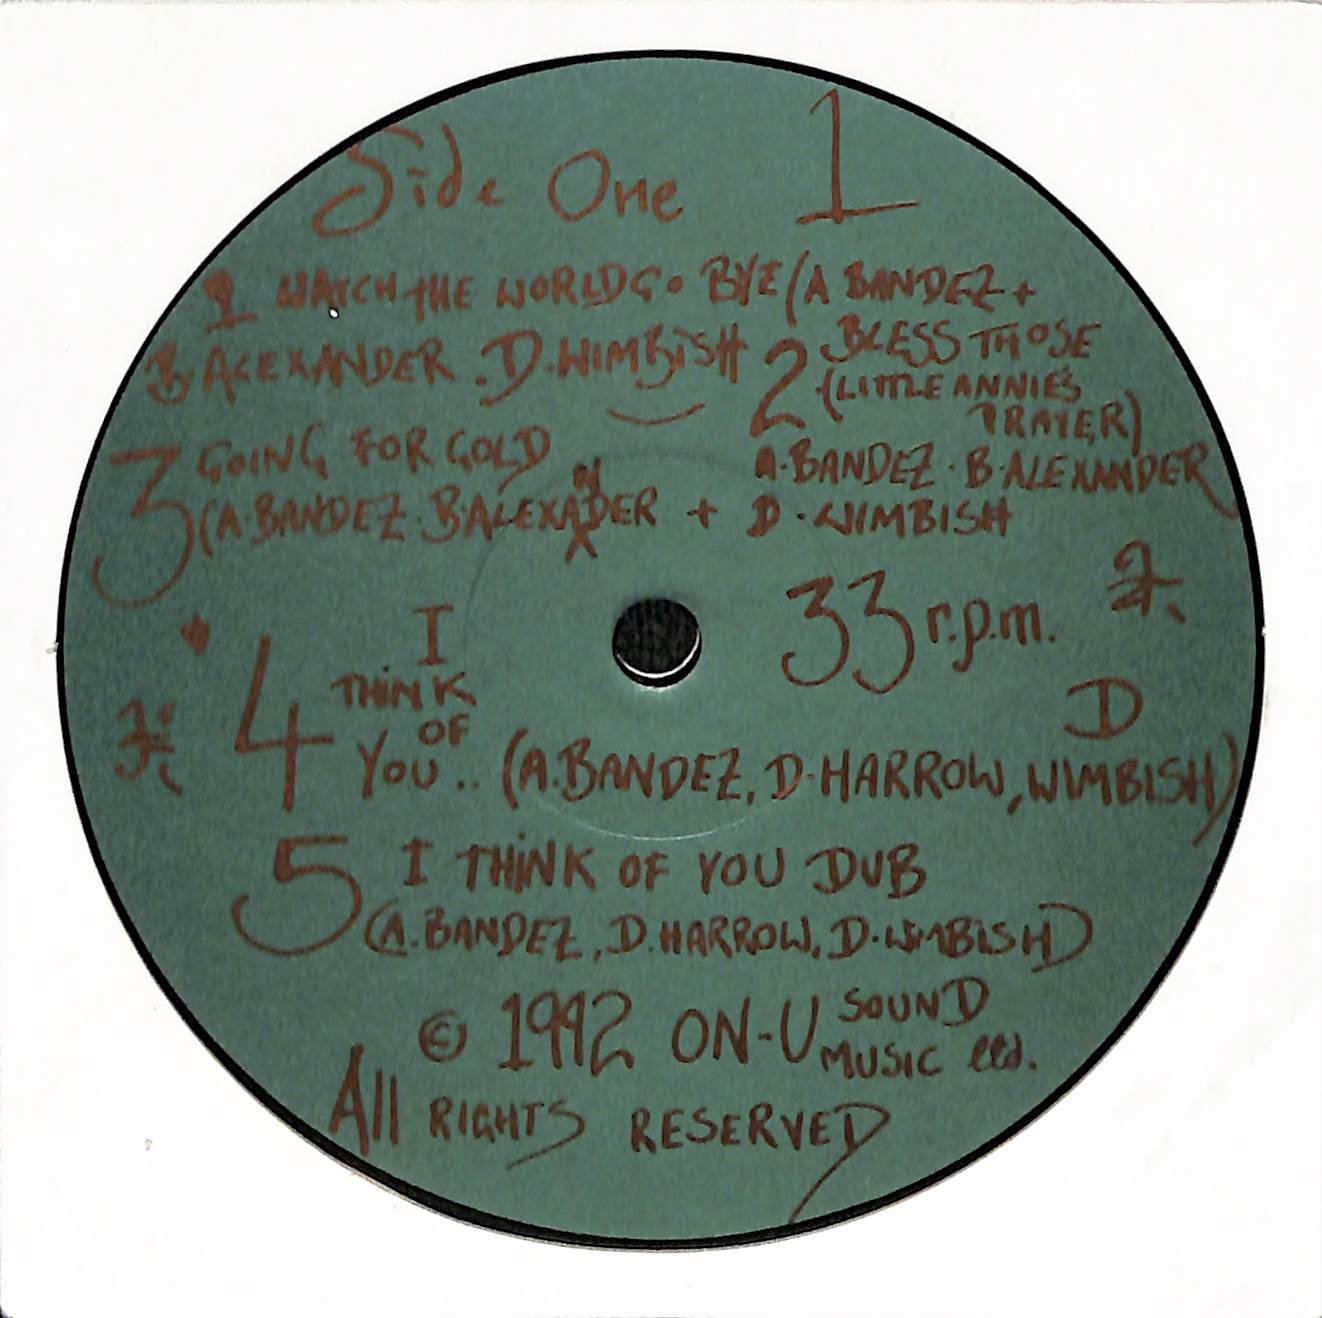 Side One 1
1 WATCH THE WORLD GO BYE (A BANDEZ +
B. ALEXANDER . D. WIMBISH
2 BLESS THOSE
(LITTLE ANNIE'S
PRAYER)
A. BANDEZ . B. ALEXANDER
+ D. WIMBISH
3 GOING FOR GOLD
(A. BANDEZ. B. ALEXANDER
33 r.p.m.
4 I
THINK
OF
YOU .. (A. BANDEZ, D. HARROW, D WIMBISH)
5 I THINK OF YOU DUB
(A. BANDEZ, D. HARROW, D. WIMBISH)
© 1992 ON-U SOUND
MUSIC LTD.
All RIGHTS RESERVED